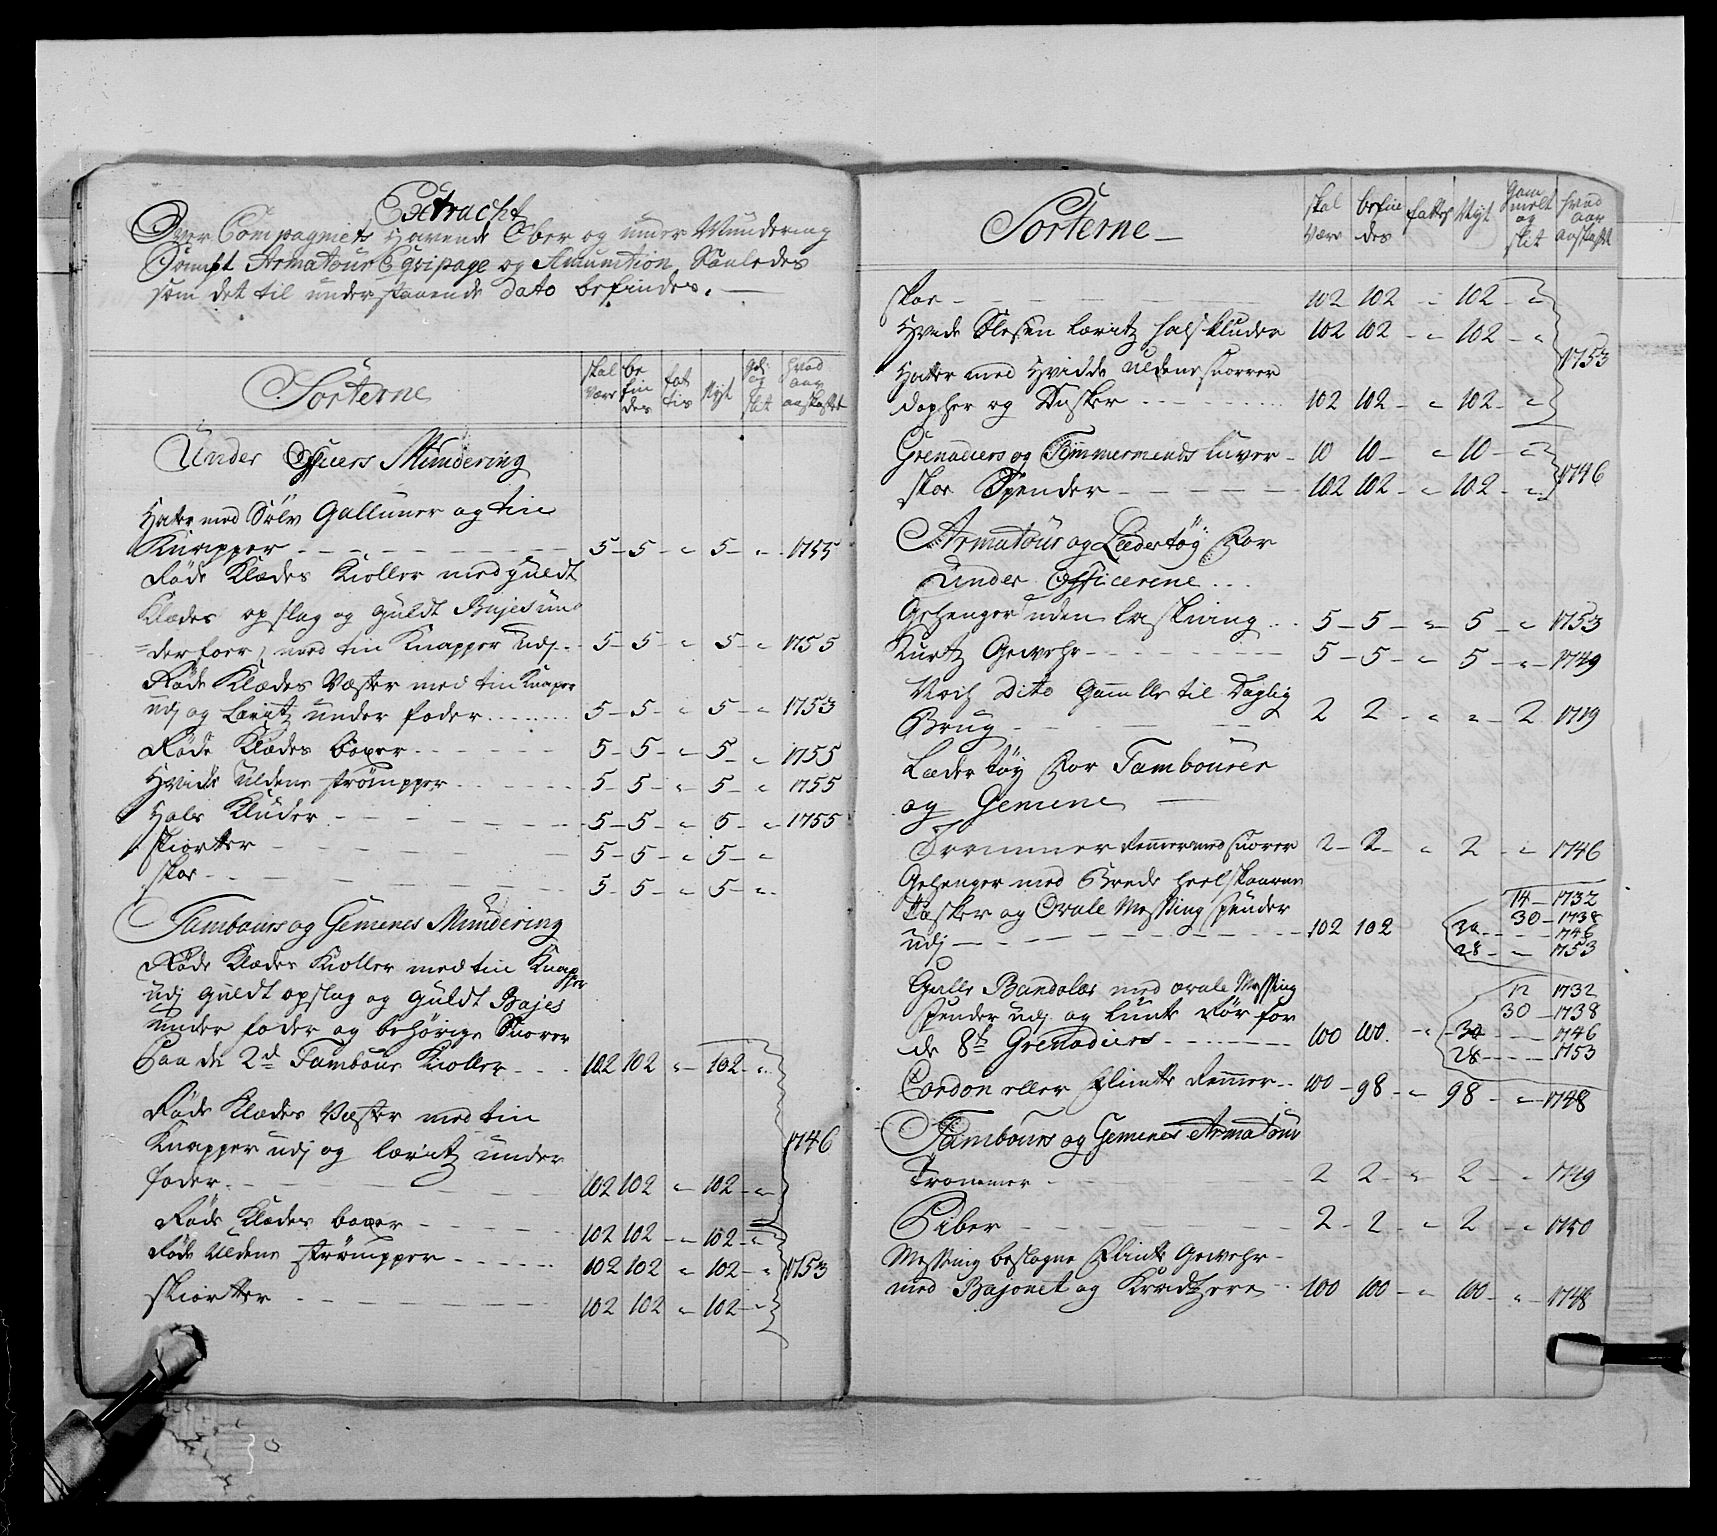 Extracht
Over Compagniets Havende Ober og under Mundering
Sampt Armatour Eqvipage og Amunition Saaledes
som det til understaaende Dato befindes. —
Sorterne
skal være
be fin des
fat tis
Nyt
og slet
hvad aar anskaffet
Under Officers Mundering
Hatte med Sölv Galluner og tin
Knapper — 5 — 5 — " 5 — " 1755
Røde Klædes Kioller med guldt
Klædes opslag og guldt Bajes un=
=derfoer, med tin Knapper udj — 5 — 5 — " 5 — " 1755
Røde Klædes Væster med tin Knaper
udj og Læritz under foder 5 — 5 — " 5 — " 1753
Røde Klædes boxer 5 — 5 — " 5 — " 1755
Hvide Uldene strømpper 5 — 5 — " 5 — " 1755
Hals Kluder 5 — 5 — " 5 — " 1755
Skiorter 5 — 5 — " 5 — "
Skoe 5 — 5 — " 5 — "
Tambours og Gemenes Mundering
Røde Klædes Kioller med tin Knapper
udj guldt opslag og guldt Bajes
under foder og behørige Snorer
Paa de 2d Tambour Kioller 102 102 " 102 — "
Røde Klædes Væster med tin
Knapper udj og læritz under 1746
foder 102 102 " 102 — "
Røde Klædes boxer 102 102 — " 102 — "
Røde Uldene strømpper 102 102 " 102 — " 1753
Skiortter 102 102 " 102 — "
Sorterne —
skal være
befin des
fattes
Nyt
gammelt og slet
hvad aar anskaffet
Skoe 102 102 — " 102 — "
Hvide Slesen læritz halskluder 102 102 — " 102 — " 1753
Hatter med Hvidde Uldene snorrer
dopher og Dusker 102 102 — " 102 — "
Grenadiers og Tömmermends luver — 10 10 — " 10 — " 1746
skoe Spender 102 102 — " 102 — "
Armatour og Lædertöÿ For
Under Officerene
Gehenger uden laskning 5 — 5 — " 5 — " 1753
Kurtz Gewehr 5 — 5 — " 5 — " 1749
Noch Dito Gamelle til Daglig
Brug 2 2 — " " — 2 1719
Læder töy For Tambourer
og Gemene —
Trommer Remer med snorer 2 — 2 — " 2 — " 1746
Gehenger med Brede
14 — 1732
Tasker og Ovale Messing spender 30 — 1738
udj — 102 102 30 — 1746
28 — 1753
Gulle Bandoler med ovale Messing 12 1732
spender udj og Lunte Rör for 30 — 1738
de 8te Grenadiers 100 100 — " 30 — 1746
28 — 1753
Cordon eller Flinte Remer 100 — 98 — " 98 — " 1748
Tambours og Gemenes Armatour
Trommer 2 2 — " 2 — " 1719
Piber 2 — 2 — " 2 — " 1750
Messing beslagne Flinte Gewehr
med Bajonet og Kradtzere 100 100 — " 100 — " 1748